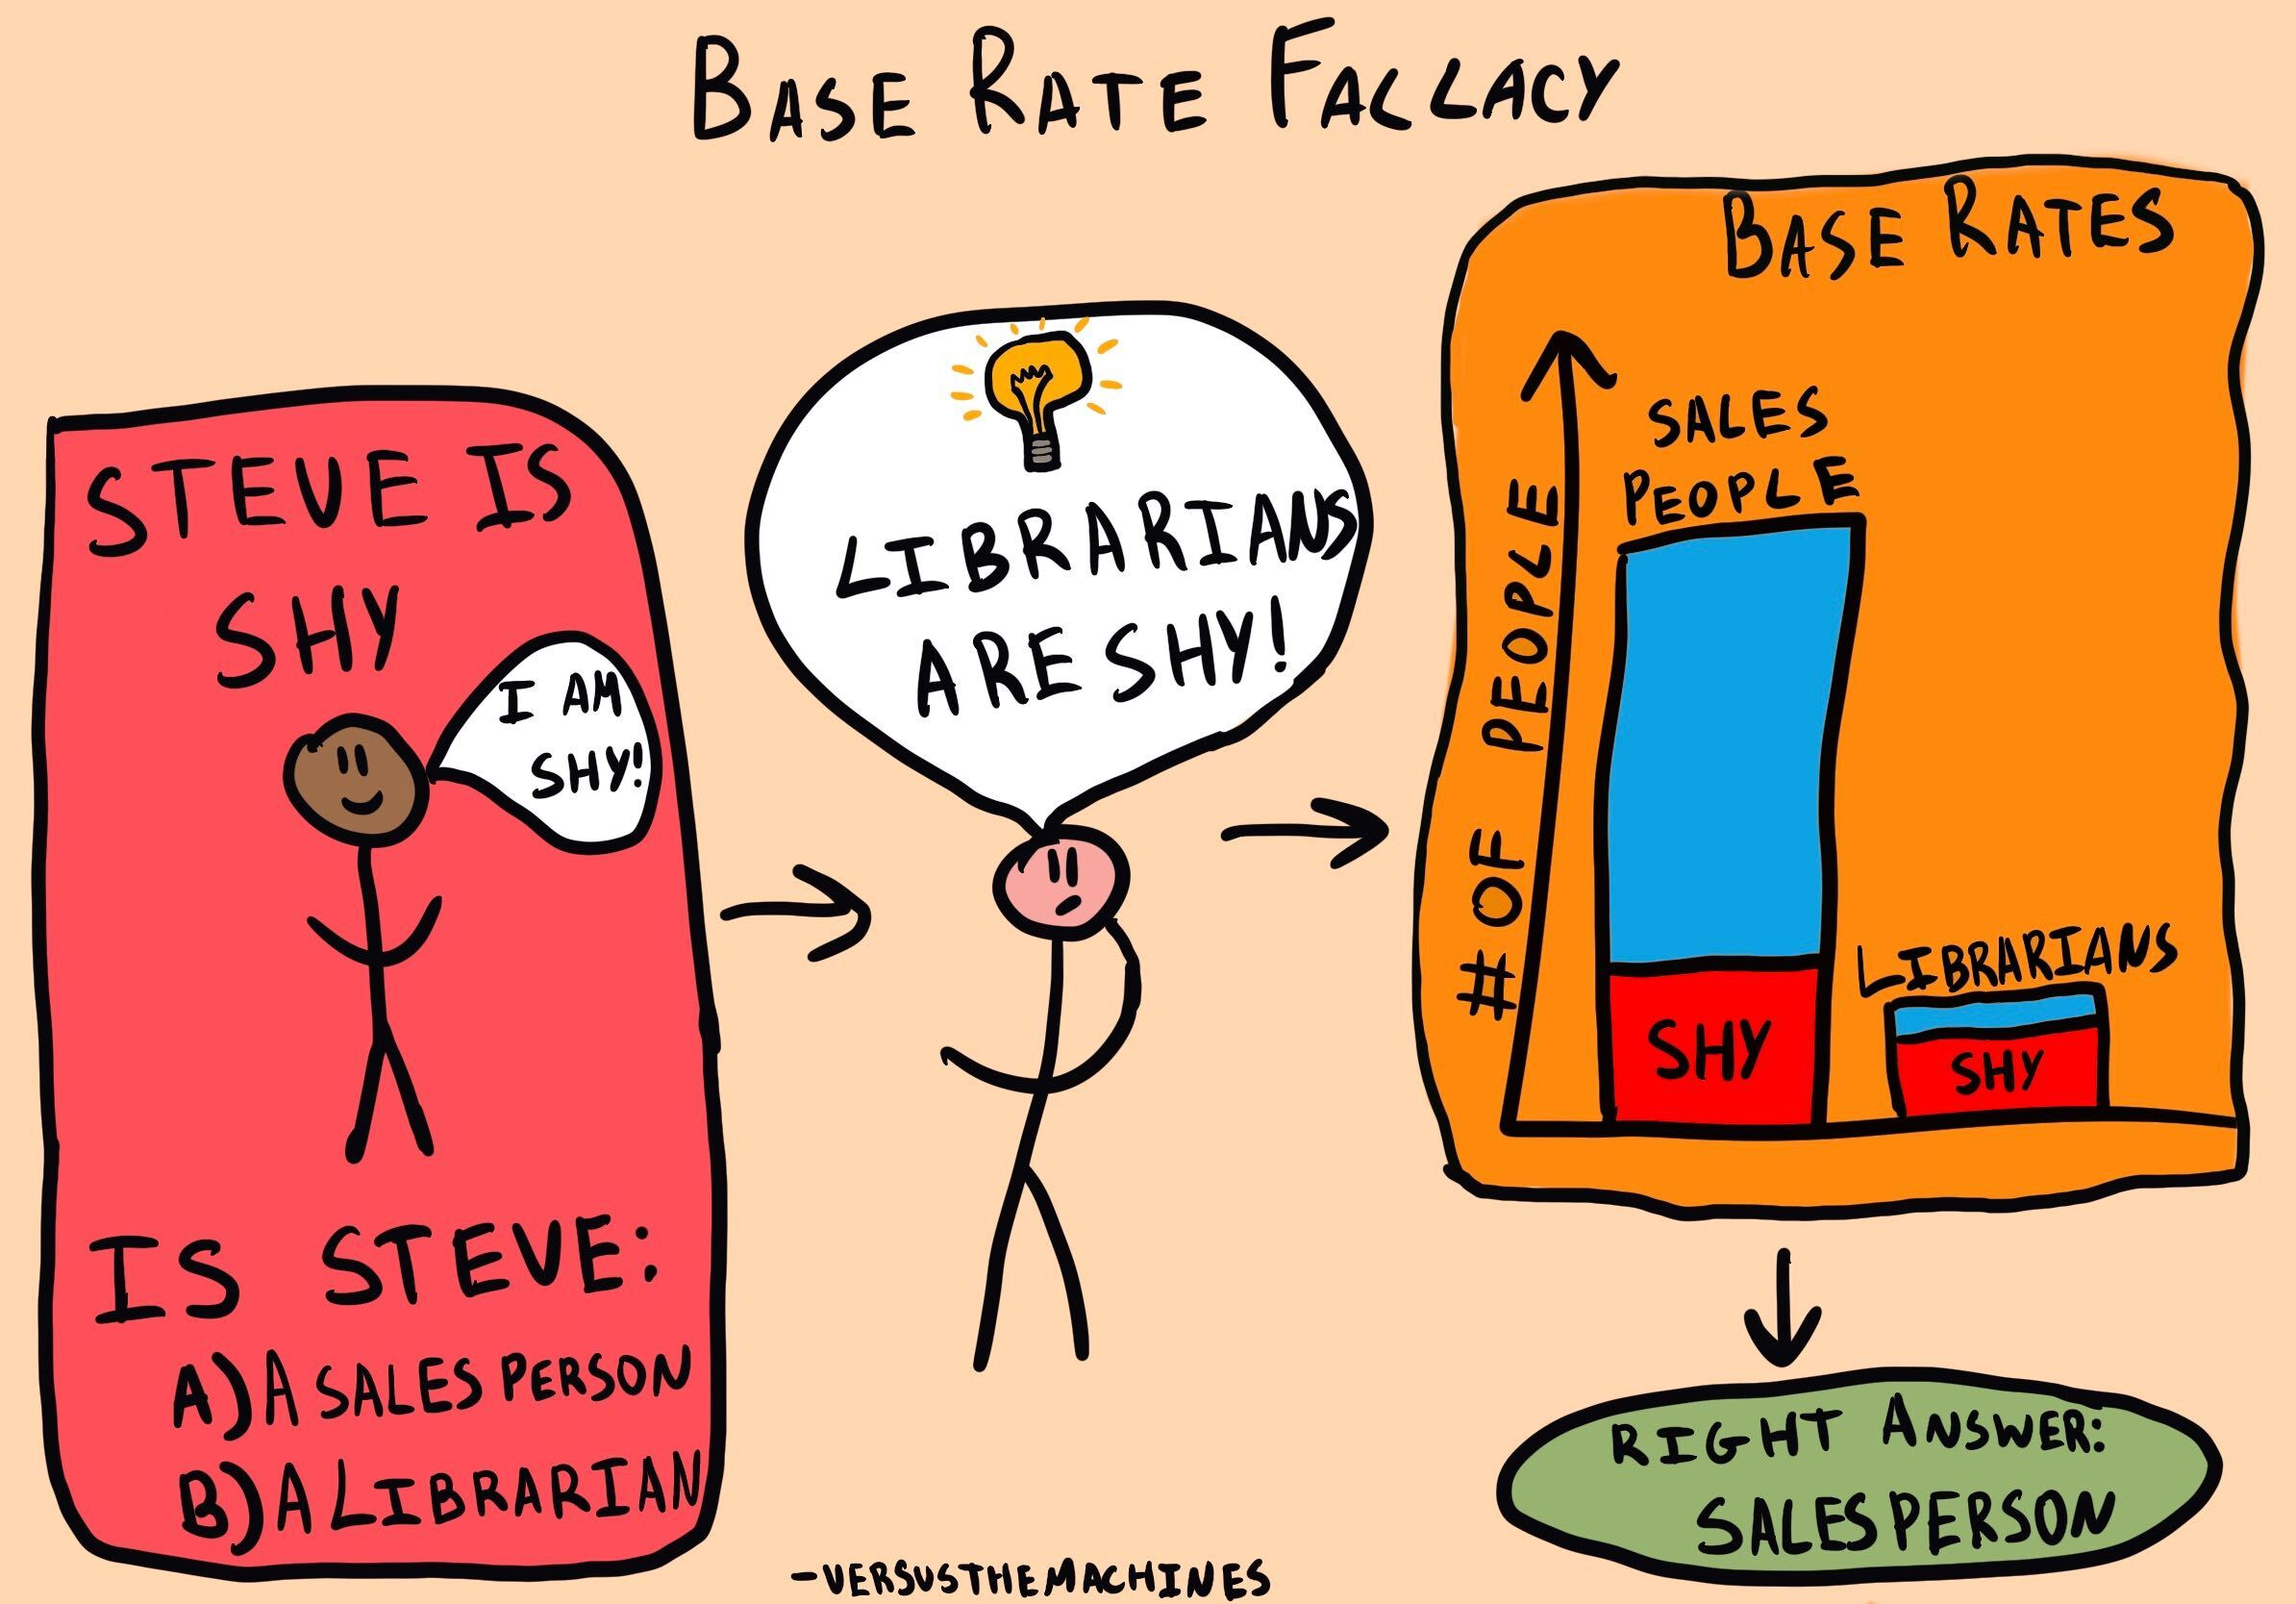 BASE RATE FALLACY
STEVE IS
SHY
I AM
SHY!
IS STEVE:
A) A SALES PERSON
B) A LIBRARIAN
LIBRARIANS
ARE SHY!
BASE RATES
# OF PEOPLE
SALES
PEOPLE
SHY
LIBRARIANS
SHY
RIGHT ANSWER:
SALES PERSON
-VERSUSTHEMACHINES